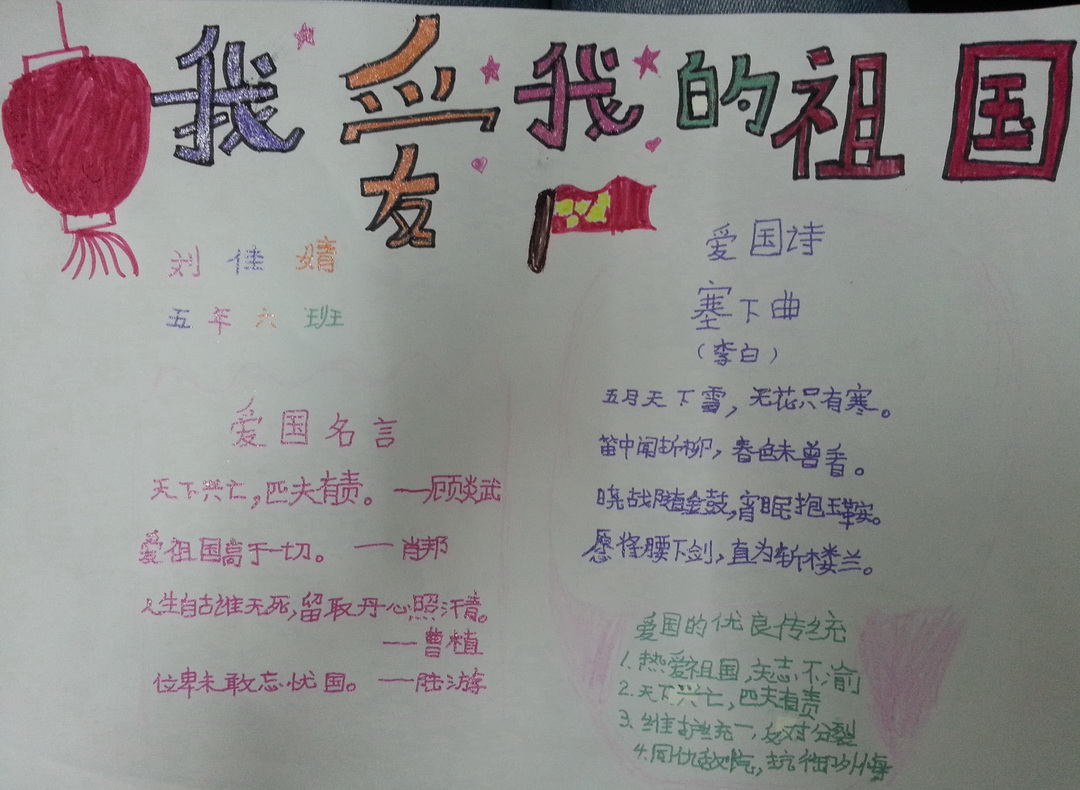 我爱我的祖国
刘佳婧
五年六班
爱国名言
天下兴亡，匹夫有责。——顾炎武
爱祖国高于一切。——肖邦
人生自古谁无死，留取丹心照汗青。
——曹植
位卑未敢忘忧国。——陆游
爱国诗
塞下曲
（李白）
五月天下雪，无花只有寒。
笛中闻折柳，春色未曾看。
晓战随金鼓，宵眠抱玉鞍。
愿将腰下剑，直为斩楼兰。
爱国的优良传统
1.热爱祖国，矢志不渝
2.天下兴亡，匹夫有责
3.维护统一，反对分裂
4.同仇敌忾，抗御外侮